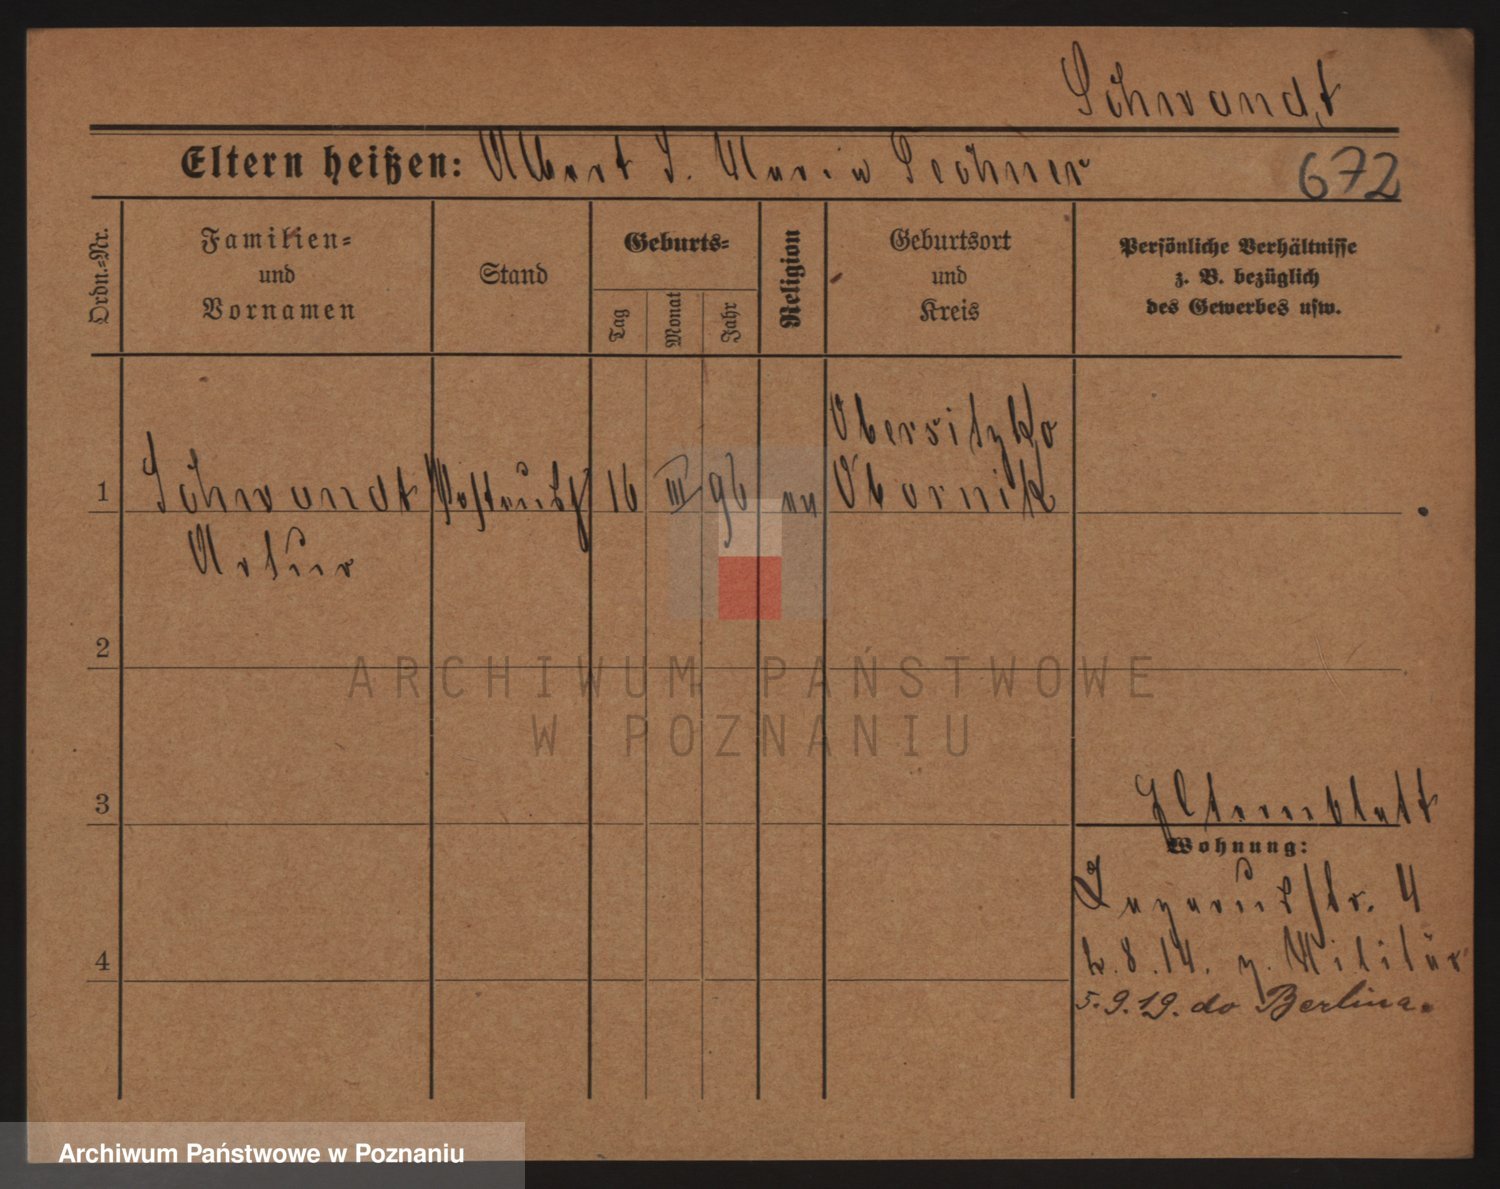 Schwandt
Eltern heißen: Albert S. Maria Lechner
672
Ordn.-Nr.
Familien- und Vornamen
Stand
Geburts-
Tag
Monat
Jahr
Religion
Geburtsort und Kreis
Persönliche Verhältnisse
z. B. bezüglich
des Gewerbes usw.
Obersitzko
1 Schwandt 16 III 96 Obornik
Artur
2
ARCHIWUM PAŃSTWOWE
W POZNANIU
3
Wohnung:
4
2.8.14. z. Militär
5.9.19. do Berlina.
Archiwum Państwowe w Poznaniu